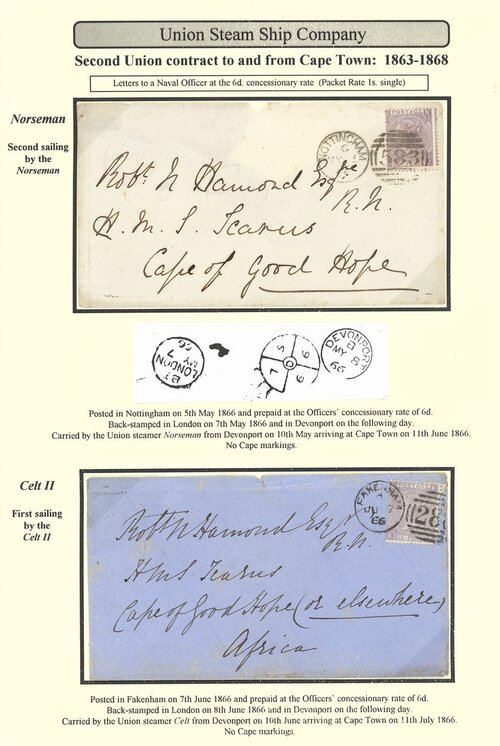 Union Steam Ship Company
Second Union contract to and from Cape Town: 1863-1868
Letters to a Naval Officer at the 6d. concessionary rate (Packet Rate 1s. single)
Norseman
Second sailing
by the
Norseman
POSTAGE
NOTTINGHAM
C
583
Robt N Hamond Esqre
R.N.
H. M. S. Icarus
Cape of Good Hope
BT
LONDON
MY 7
66
DEVONPORT
B
MY 8
66
Posted in Nottingham on 5th May 1866 and prepaid at the Officers' concessionary rate of 6d.
Back-stamped in London on 7th May 1866 and in Devonport on the following day.
Carried by the Union steamer Norseman from Devonport on 10th May arriving at Cape Town on 11th June 1866.
No Cape markings.
Celt II
First sailing
by the
Celt II
POSTAGE
FAKENHAM
JU 7
66
28
Robt N Hamond Esqr
R.N.
HMS Icarus
Cape of Good Hope (or elsewhere)
Africa
Posted in Fakenham on 7th June 1866 and prepaid at the Officers' concessionary rate of 6d.
Back-stamped in London on 8th June 1866 and in Devonport on the following day.
Carried by the Union steamer Celt from Devonport on 10th June arriving at Cape Town on 11th July 1866.
No Cape markings.